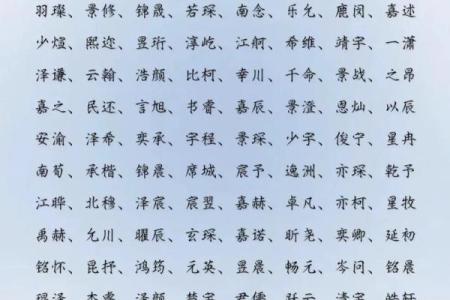 羽璨、景修、锦晟、若琛、南念、乐允、鹿闵、嘉述
少煊、熙迩、昱珩、淳屹、江舸、希维、靖宇、一潇
泽谦、云翰、浩颜、比柯、幸川、千命、景战、之昂
嘉之、民还、言旭、书睿、嘉辰、景澄、思灿、以辰
安渝、泽希、奕承、宇程、景琛、少宇、俊宁、星冉
南荀、承楷、锦晨、席城、宸予、逸洲、亦琛、乾予
江晔、北穆、泽宸、宸翌、嘉赫、卓凡、亦柯、星牧
禹赫、允川、曜辰、玄琛、嘉诺、昕尧、奕卿、延初
铭怀、昆抒、鸿筠、元英、昱晨、畅元、岑问、铭晨